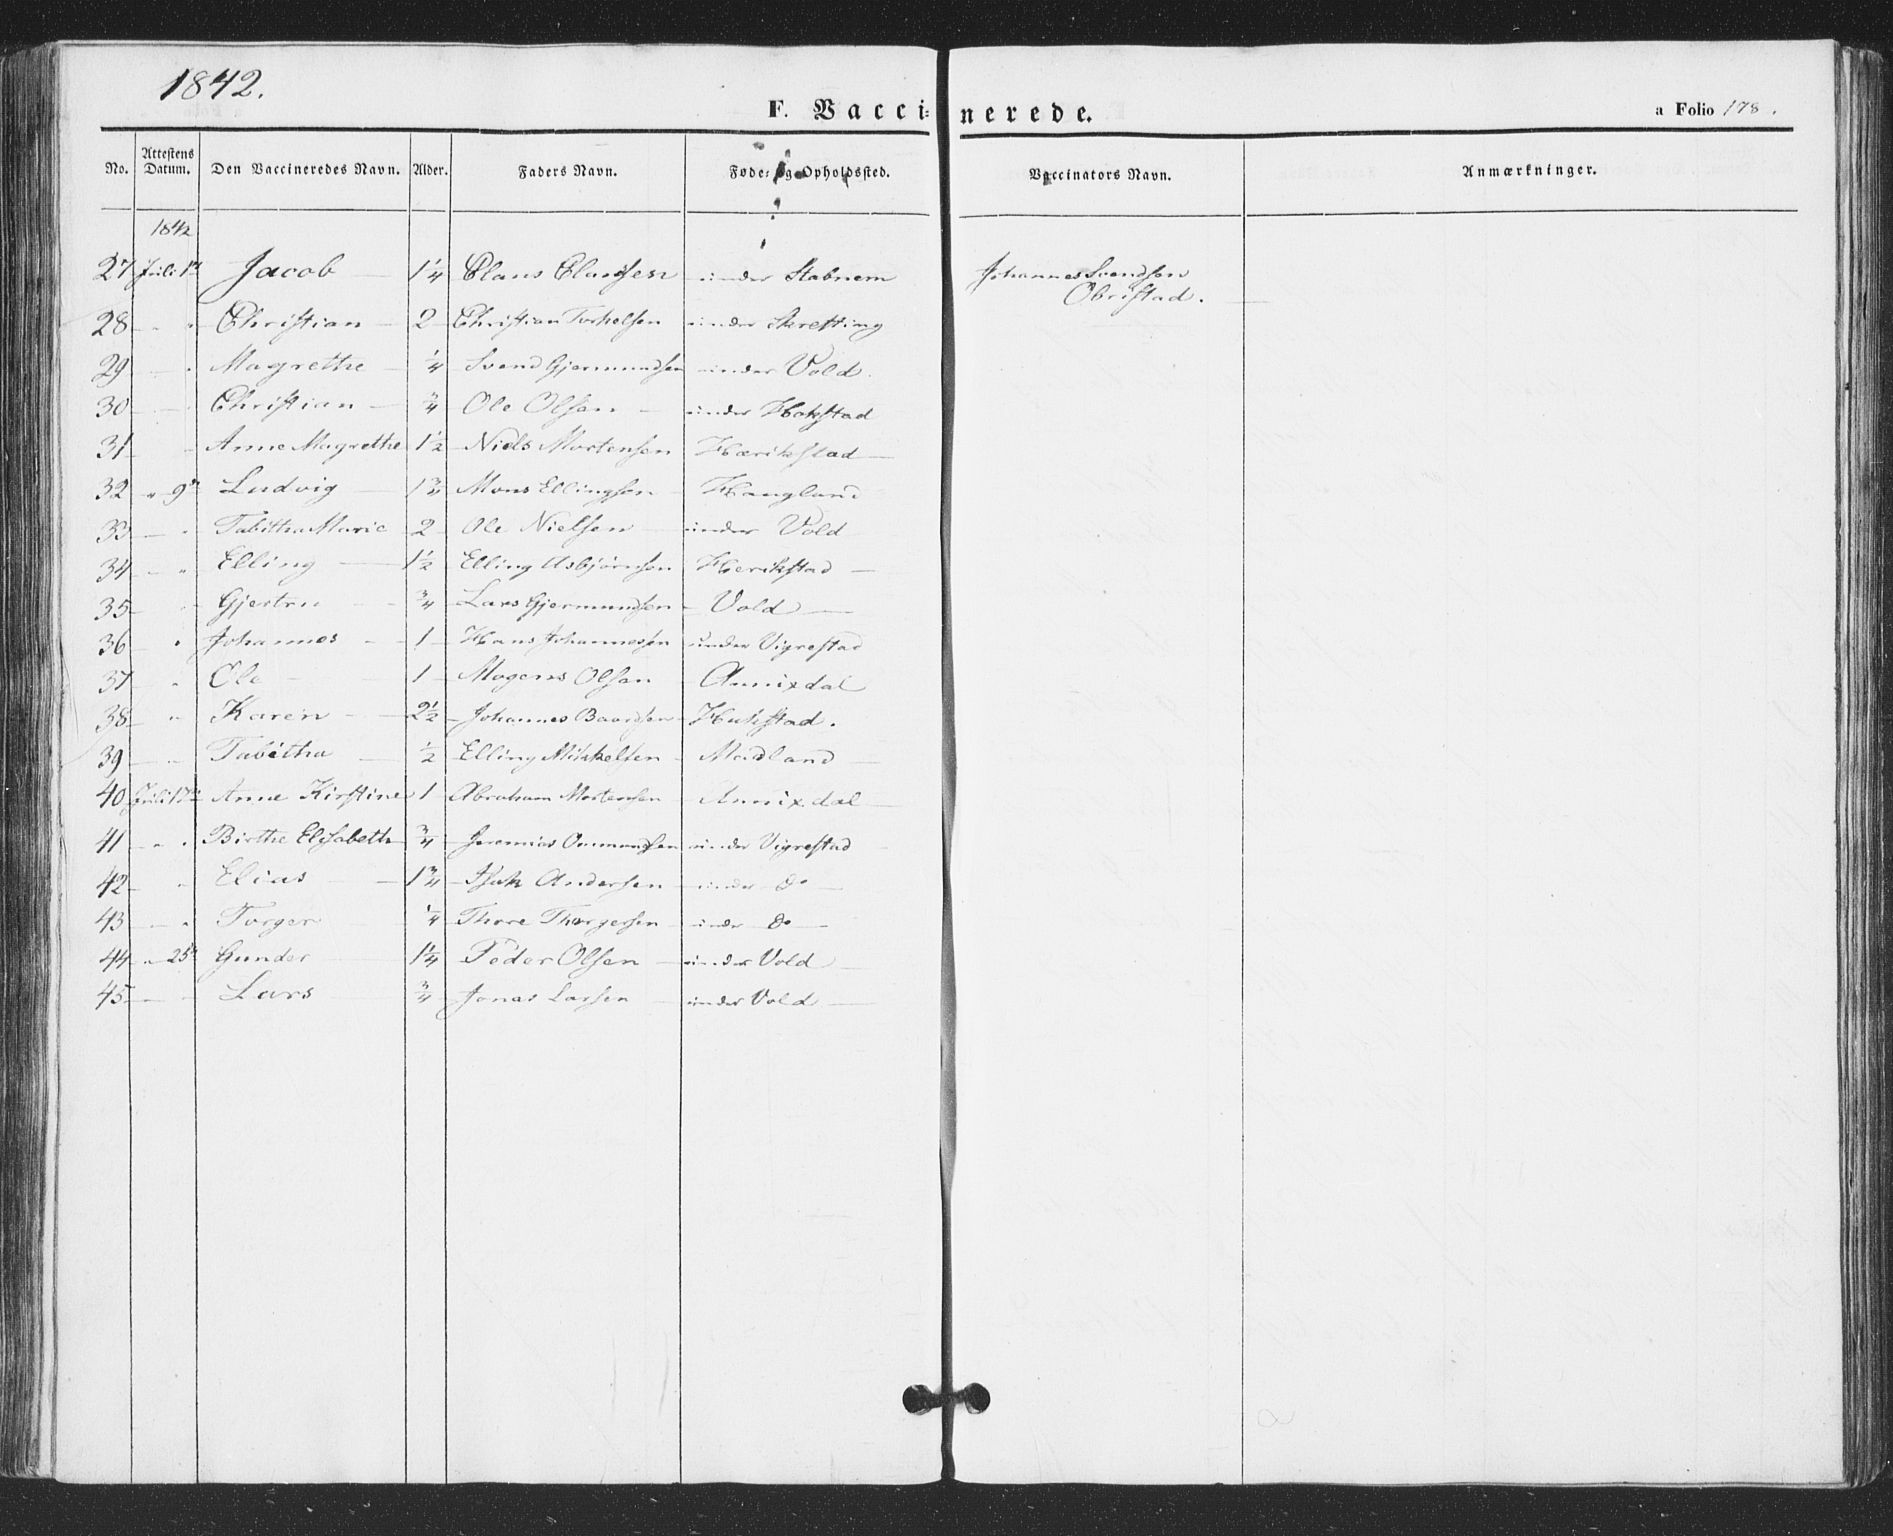 1842.
F. Vaccinerede.
a Folio 178.
No. Attestens Datum. Den Vaccineredes Navn. Alder. Faders Navn. Føde- og Opholdssted. Vaccinators Navn. Anmærkninger.
1842
27 Juli 1ste Jacob 1 1/4 Claus Clausen under Stabnem Johannes Svendsen
Obristad.
28 " Christian 2 Christian Torkelsen under Skretting
29 " Magrethe 1/4 Svend Gjermundsen under Vold.
30 " Christian 3/4 Ole Olsen under Hokstad
31 " Anne Magrethe 1 1/2 Niels Mortensen Hærikstad
32 " 9de Ludvig 1 3/4 Mons Ellingsen Haugland
33 " Tabitha Marie 2 Ole Nielsen under Vold
34 " Elling 1 1/2 Elling Asbjørnsen Herikstad
35 " Gjertru 3/4 Lars Gjermundsen Vold
36 " Johannes 1 Hans Johannessen under Vigrestad
37 " Ole 1 Mogens Olsen Annixdal
38 " Karen 2 1/2 Johannes Baardsen Hukstad.
39 " Tabitha 1/2 Elling Mikkelsen Madland
40 Juli 17de Anne Kirstine 1 Abraham Mortensen Annixdal
41 " Birthe Elisabeth 3/4 Jeremias Ommundsen under Vigrestad
42 " Elias 1 3/4 Isak Andersen under do
43 " Torger 1/4 Thore Thorgersen under do
44 " 25de Gunder 1 1/4 Peder Olsen under Vold
45 Lars 3/4 Jonas Larsen under Vold